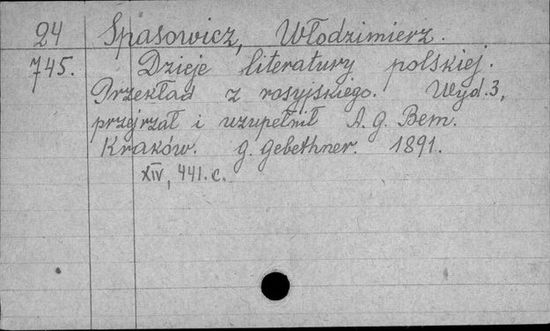 24 Spasowicz, Włodzimierz.
745. Dzieje literatury polskiej.
Przekład z rosyjskiego. Wyd. 3,
przejrzał i uzupełnił A. G. Bem.
Kraków. G. Gebethner. 1891.
XIV, 441. c.